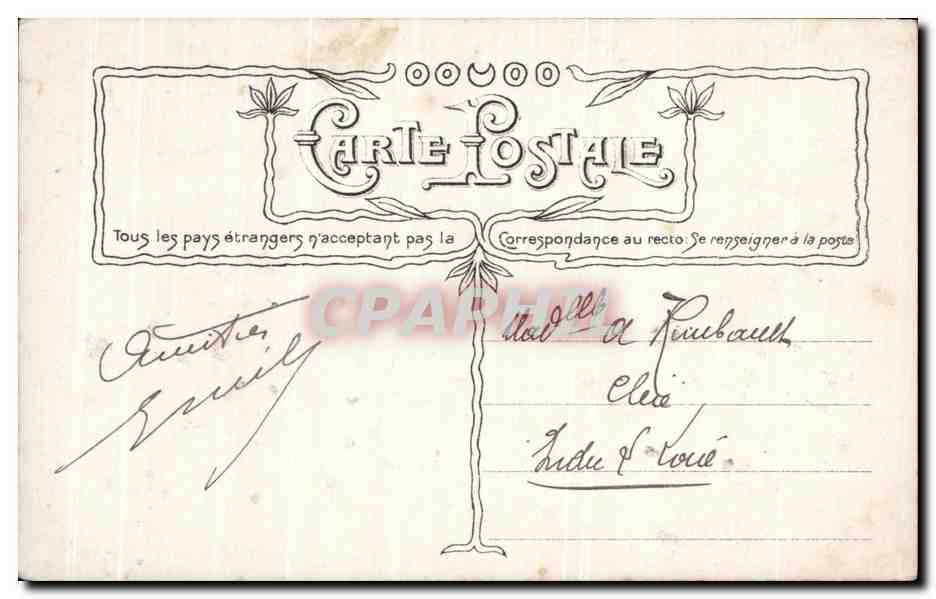 CARTE POSTALE
Tous les pays étrangers n'acceptant pas la Correspondance au recto: Se renseigner à la poste
CPAPHIL
Amitiés
Emile
Madelle A Rimbault
Cléré
Indre & Loire